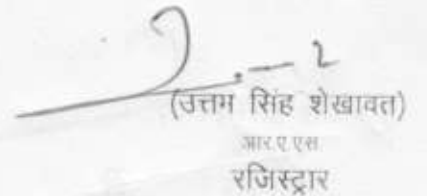 (उत्तम सिंह शेखावत)
आर.ए.एस.
रजिस्ट्रार